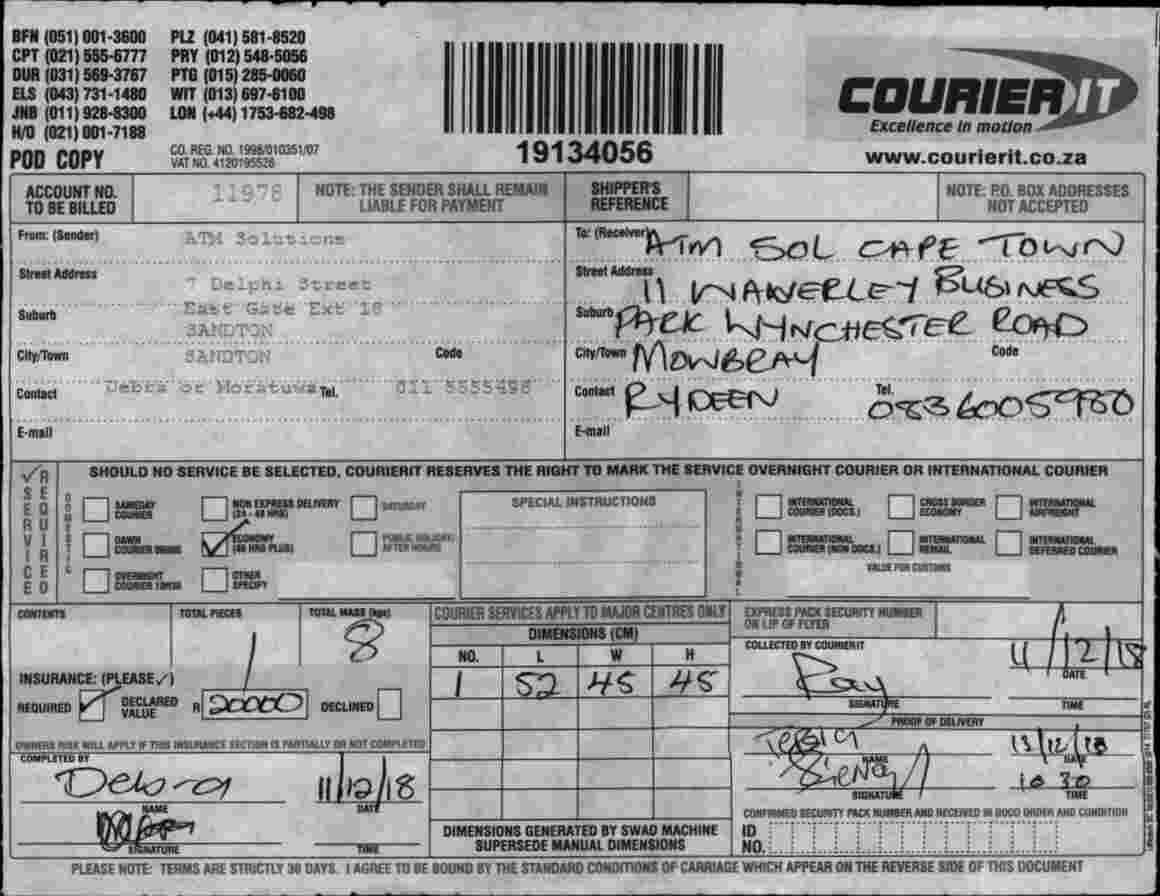 BFN (051) 001-3600 PLZ (041) 581-8520
CPT (021) 555-6777 PRY (012) 548-5056
DUR (031) 569-3767 PTG (015) 285-0060
ELS (043) 731-1480 WIT (013) 697-6100
JNB (011) 928-8300 LON (+44) 1753-682-498
H/O (021) 001-7188
POD COPY
CO. REG. NO. 1998/010351/07
VAT NO. 4120195526
19134056
COURIER IT
Excellence in motion
www.courierit.co.za
ACCOUNT NO. TO BE BILLED 11978
NOTE: THE SENDER SHALL REMAIN LIABLE FOR PAYMENT
SHIPPER'S REFERENCE
NOTE: P.O. BOX ADDRESSES NOT ACCEPTED
From: (Sender) ATM Solutions
Street Address 7 Delphi Street
Suburb East Gate Ext 18
SANDTON
City/Town SANDTON Code
Contact Debra or Moratuwa Tel. 011 5555498
E-mail
To: (Receiver) ATM SOL CAPE TOWN
Street Address 11 WAVERLEY BUSINESS
Suburb PARK WYNCHESTER ROAD
City/Town MOWBRAY Code
Contact RYDEEN Tel. 0836005980
E-mail
✓ SERVICE REQUIRED
SHOULD NO SERVICE BE SELECTED, COURIERIT RESERVES THE RIGHT TO MARK THE SERVICE OVERNIGHT COURIER OR INTERNATIONAL COURIER
DOMESTIC
SAMEDAY COURIER
NON EXPRESS DELIVERY (24 - 48 HRS)
SATURDAY
DAWN COURIER
✓ ECONOMY (48 HRS PLUS)
PUBLIC HOLIDAY/ AFTER HOURS
OVERNIGHT COURIER 10H30
OTHER SPECIFY
SPECIAL INSTRUCTIONS
INTERNATIONAL
INTERNATIONAL COURIER (DOCS.)
CROSS BORDER ECONOMY
INTERNATIONAL AIRFREIGHT
INTERNATIONAL COURIER (NON DOCS.)
INTERNATIONAL REMAIL
INTERNATIONAL DEFERRED COURIER
VALUE FOR CUSTOMS
CONTENTS
TOTAL PIECES 1
TOTAL MASS (kgs) 8
INSURANCE: (PLEASE ✓)
REQUIRED ✓ DECLARED VALUE R 20000 DECLINED
OWNERS RISK WILL APPLY IF THIS INSURANCE SECTION IS PARTIALLY OR NOT COMPLETED
COMPLETED BY
Debra 11/12/18
NAME DATE
SIGNATURE TIME
COURIER SERVICES APPLY TO MAJOR CENTRES ONLY
DIMENSIONS (CM)
NO. L W H
1 52 45 45
DIMENSIONS GENERATED BY SWAD MACHINE SUPERSEDE MANUAL DIMENSIONS
EXPRESS PACK SECURITY NUMBER ON LIP OF FLYER
COLLECTED BY COURIERIT
Ray 11/12/18
SIGNATURE DATE
TIME
PROOF OF DELIVERY
13/12/18
NAME DATE
10 30
SIGNATURE TIME
CONFIRMED SECURITY PACK NUMBER AND RECEIVED IN GOOD ORDER AND CONDITION
ID NO.
PLEASE NOTE: TERMS ARE STRICTLY 30 DAYS. I AGREE TO BE BOUND BY THE STANDARD CONDITIONS OF CARRIAGE WHICH APPEAR ON THE REVERSE SIDE OF THIS DOCUMENT